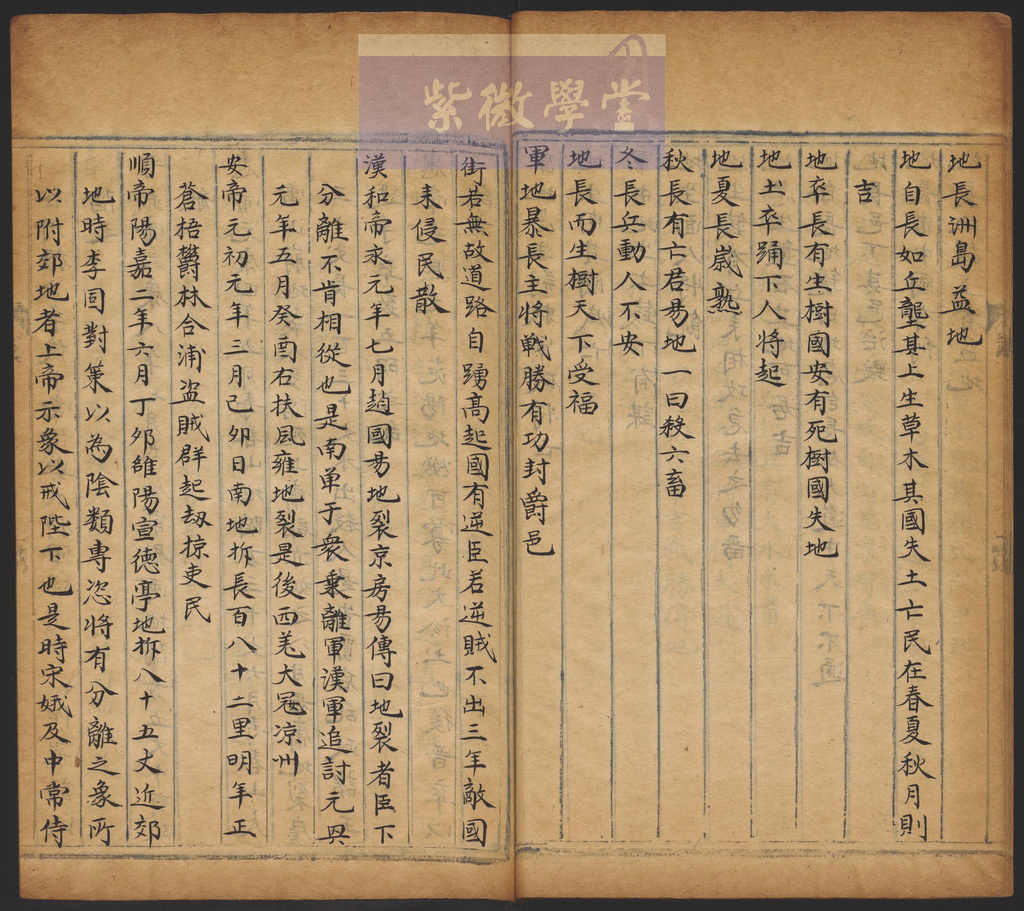 紫微學堂
地長洲島益地
地自長如丘壟其上生草木其國失土亡民在春夏秋月則
吉
地卒長有生樹國安有死樹國失地
地土卒踊下人將起
地夏長歲熟
秋長有亡君易地一曰殺六畜
冬長兵動人不安
地長而生樹天下受福
軍地暴長主將戰勝有功封爵邑
街若無故道路自踴高起國有逆臣若逆賊不出三年敵國
来侵民散
漢和帝永元年七月趙國易地裂京房易傳曰地裂者臣下
分離不肯相從也是南单于衆乗離軍漢軍追討元興
元年五月癸酉右扶風雍地裂是後西羌大冦凉州
安帝元初元年三月己夘日南地拆長百八十二里明年正
蒼梧欝林合浦盗賊群起刼掠吏民
順帝陽嘉二年六月丁夘雒陽宣徳亭地拆八十五丈近郊
地時李固對策以為陰類專恣將有分離之象所
以附郊地者上帝示象以戒陛下也是時宋娥及中常侍